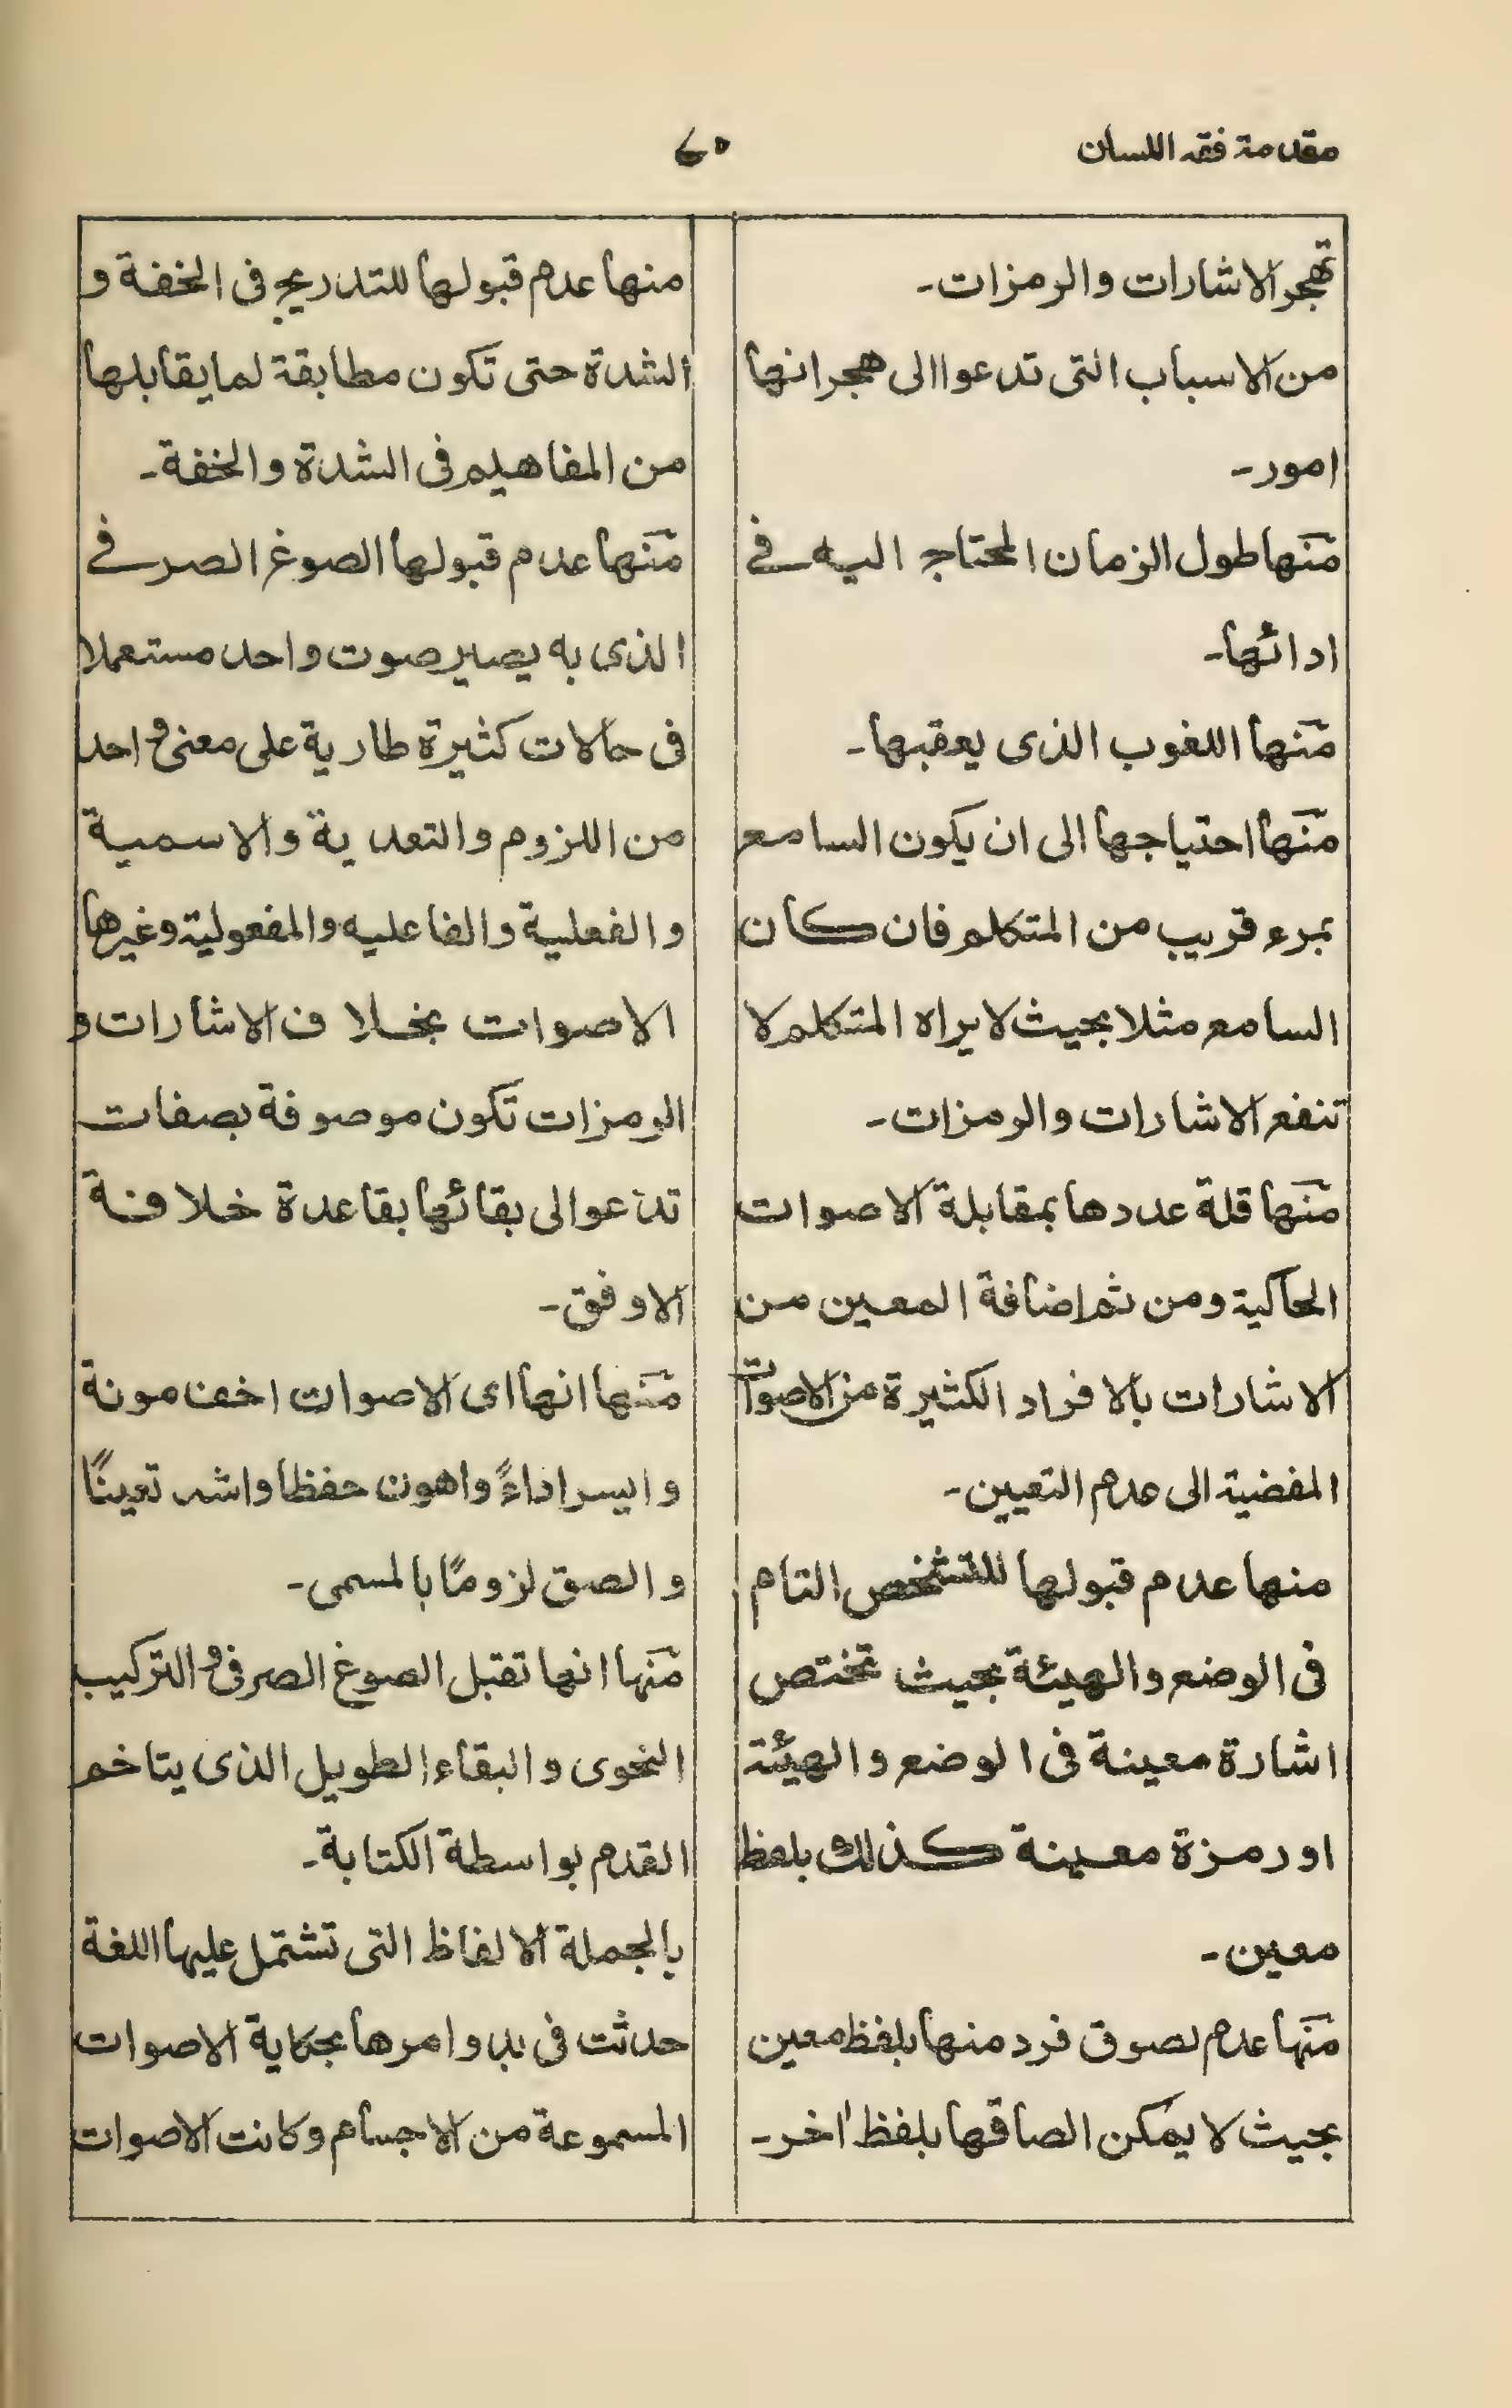 مقدمة فقه اللسان
٤٠
تهجر الاشارات والرمزات۔
من الاسباب التى تدعوا الى هجرانها
امور۔
منها طول الزمان المحتاج اليه فے
ادائها۔
منها اللغوب الذى يعقبها۔
منها احتياجها الى ان يكون السامع
بمرء قريب من المتكلم فان كان
السامع مثلا بحيث لا يراه المتكلم لا
تنفع الاشارات والرمزات۔
منها قلة عددها بمقابلة الاصوات
الحاكية ومن ثم اضافة المعين من
الاشارات بالافراد الكثيرة من الاصوات
المفضية الى عدم التعيين۔
منها عدم قبولها للتشخص التام
فى الوضع والهيئة بحيث تختص
اشارة معينة فى الوضع والهيئة
او رمزة معينة كذلك بلفظ
معين۔
منها عدم لصوق فرد منها بلفظ معين
بحيث لا يمكن الصاقها بلفظ اٰخر۔
منها عدم قبولها للتدريج فى الخفة و
الشدة حتى تكون مطابقة لما يقابلها
من المفاهيم فى الشدة والخفة۔
منها عدم قبولها الصوغ الصرفے
الذى به يصير صوت واحد مستعملا
فى حالات كثيرة طارية على معنى واحد
من اللزوم والتعدية والاسمية
والفعلية والفاعليه والمفعولية وغيرها
الاصوات بخلاف الاشارات و
الرمزات تكون موصوفة بصفات
تدعو الى بقائها بقاعدة خلافة
الاوفق۔
منها انها اى الاصوات اخف مونة
وايسر اداءً واهون حفظا واشد تعينًا
والصق لزومًا بالمسمى۔
منها انها تقبل الصوغ الصرفى والتركيب
النحوى والبقاء الطويل الذى يتاخم
القدم بواسطة الكتابة۔
بالجملة الالفاظ التى تشتمل عليها اللغة
حدثت فى بدو امرها بحكاية الاصوات
المسموعة من الاجسام وكانت الاصوات